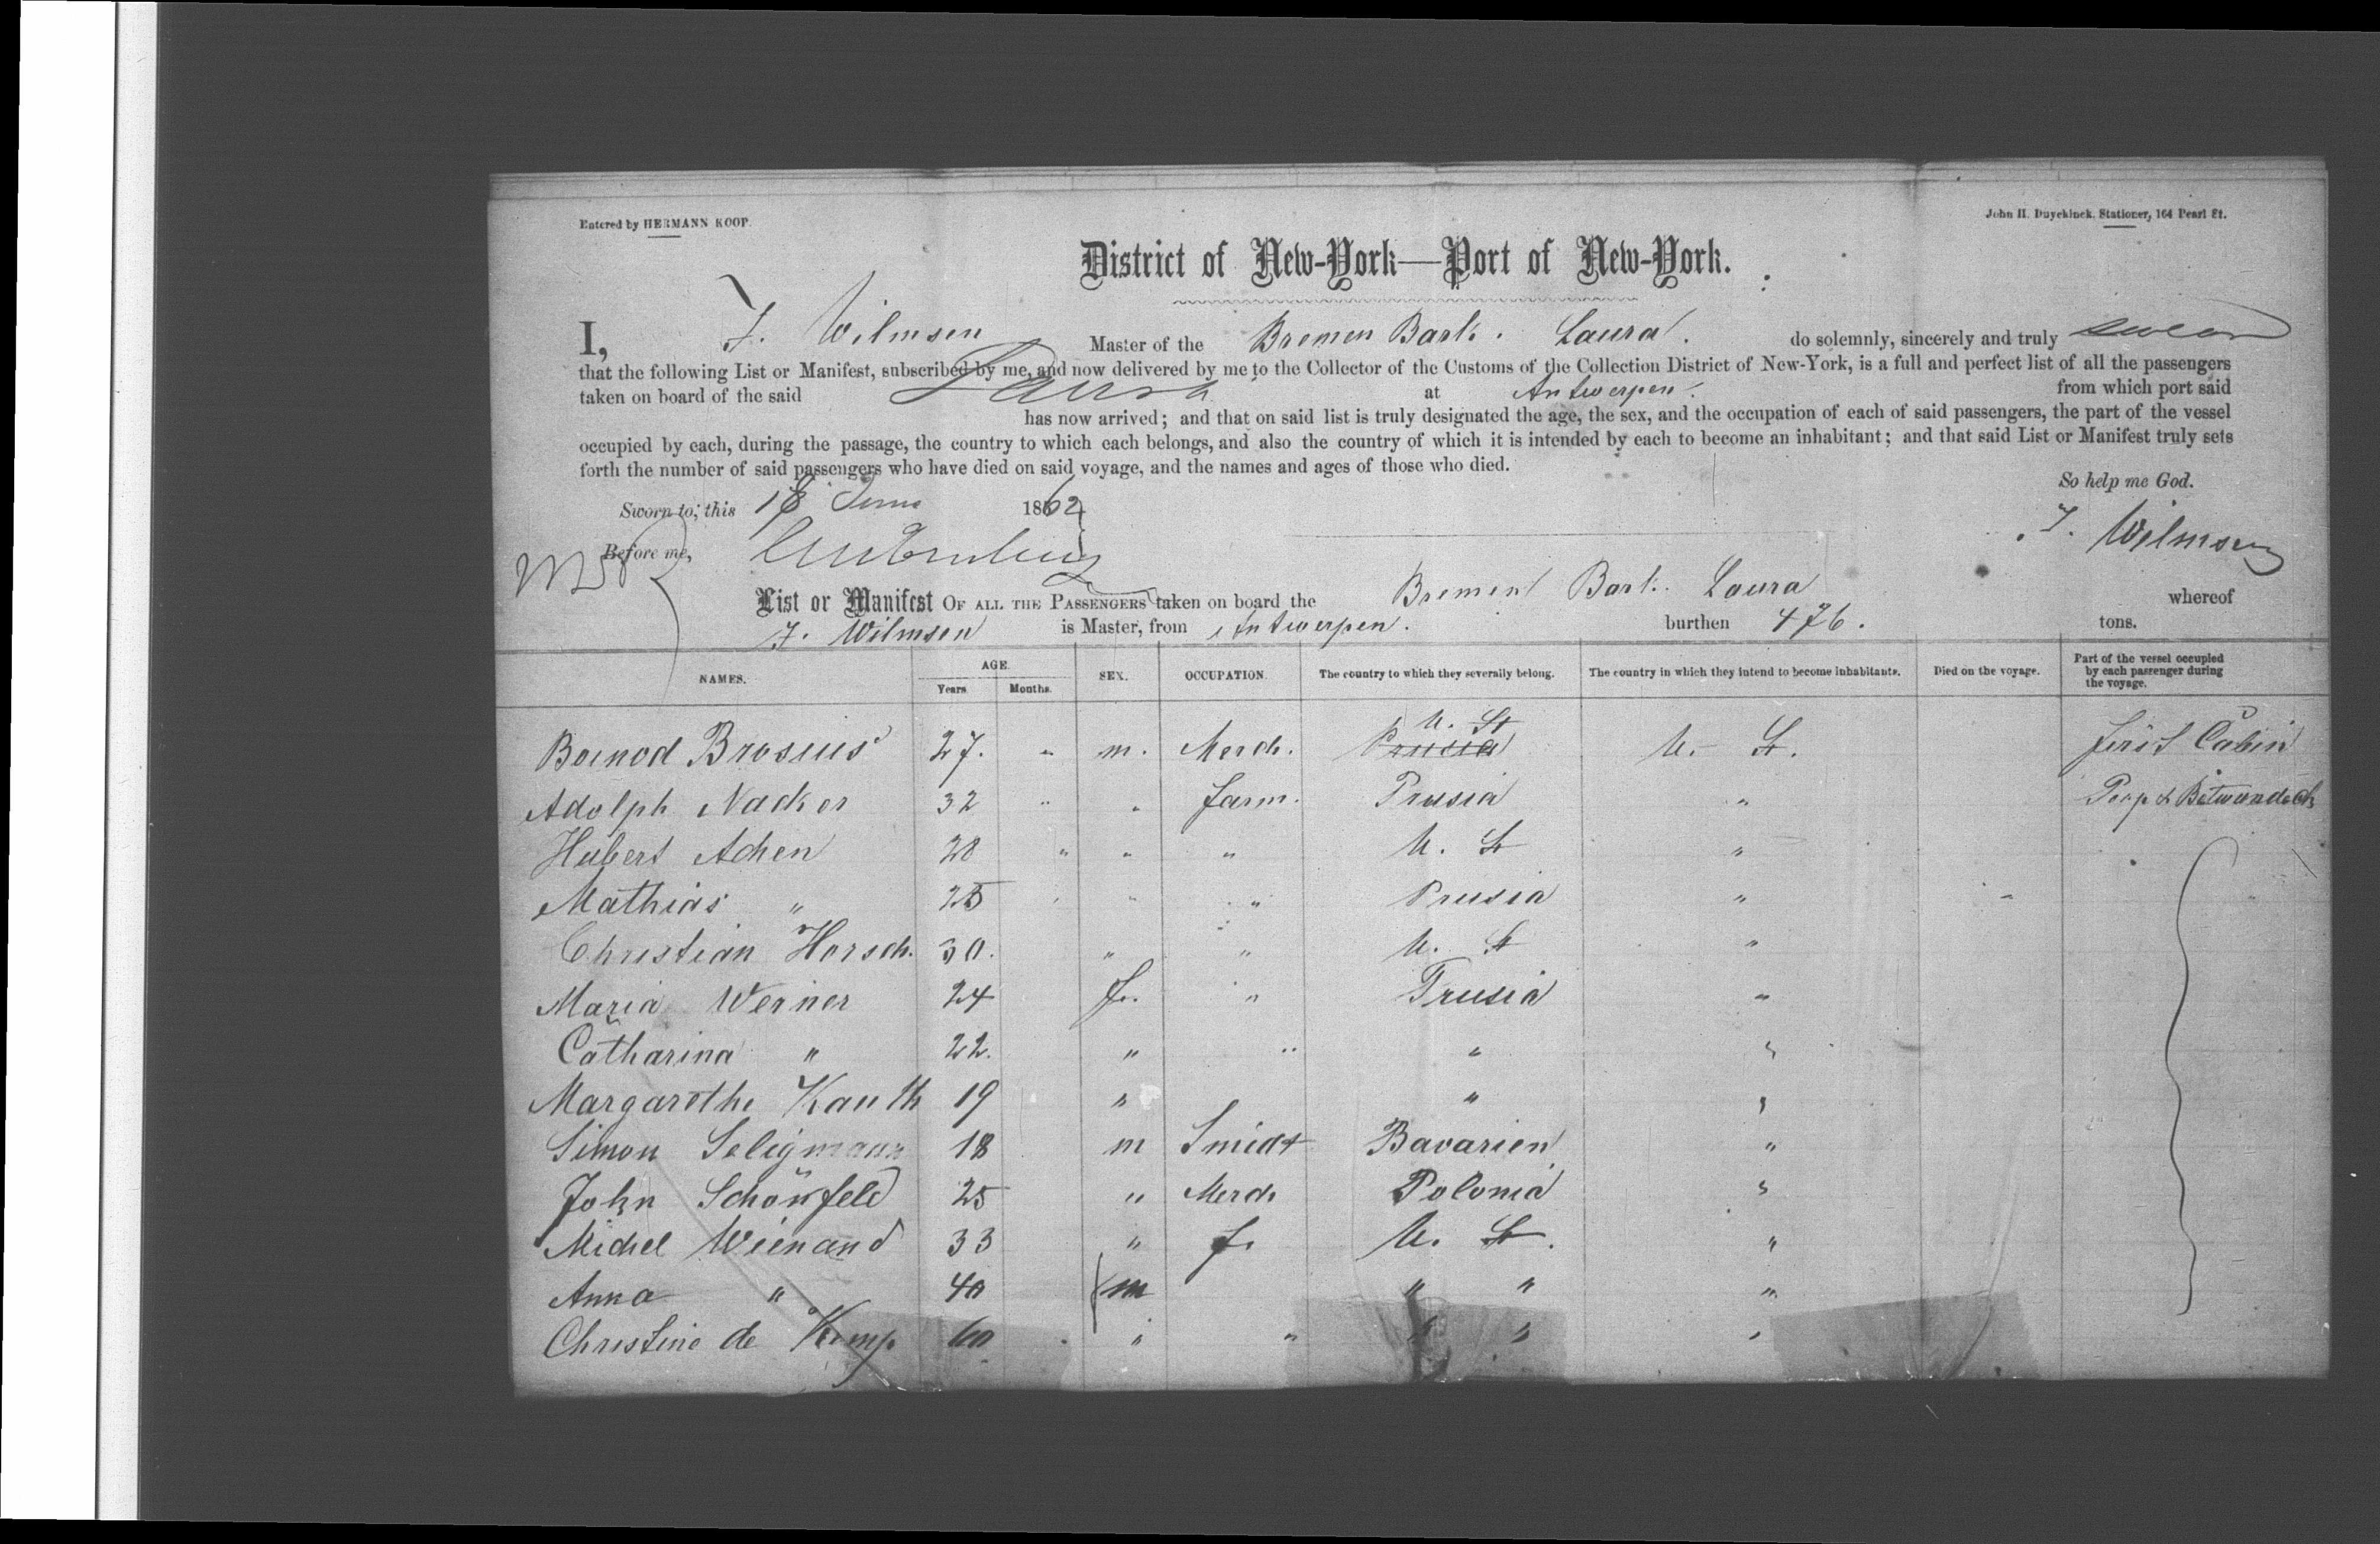 Entered by HERMANN KOOP.
John H. Duyckinck, Stationer, 164 Pearl St.
District of New-York—Port of New-York.
I, F. Wilmsen Master of the Bremen Bark. Laura. do solemnly, sincerely and truly swear
that the following List or Manifest, subscribed by me, and now delivered by me to the Collector of the Customs of the Collection District of New-York, is a full and perfect list of all the passengers
taken on board of the said Laura at Antwerpen. from which port said
has now arrived; and that on said list is truly designated the age, the sex, and the occupation of each of said passengers, the part of the vessel
occupied by each, during the passage, the country to which each belongs, and also the country of which it is intended by each to become an inhabitant; and that said List or Manifest truly sets
forth the number of said passengers who have died on said voyage, and the names and ages of those who died.
So help me God.
Sworn to, this 18 June 1862
F. Wilmsen
Before me,
List or Manifest OF ALL THE PASSENGERS taken on board the Bremen Bark. Laura whereof
F. Wilmsen is Master, from Antwerpen. burthen 476. tons.
NAMES. AGE. Years. Months. SEX. OCCUPATION. The country to which they severally belong. The country in which they intend to become inhabitants. Died on the voyage. Part of the vessel occupied by each passenger during the voyage.
Brosius 27. " m. Merch. Prusia U. St U. St. first Cabin
Adolph Nacker 32 " " farm. Prusia "
Hubert Achen 28 " " " U. St "
Mathias " 25 " " " Prusia "
Christian Horsch. 30. " " U. St "
Maria Werner 24 f. " Prusia "
Catharina " 22. " " " "
Margarethe Kauth 19 " " "
Simon Seligmann 18 m Smidt Bavarien "
John Schönfeld 25 " Merch Polonia "
Michel Wienand 33 " f. U. St. "
Anna " 40 f m " " "
Christine de Kemp 60 " " " " "